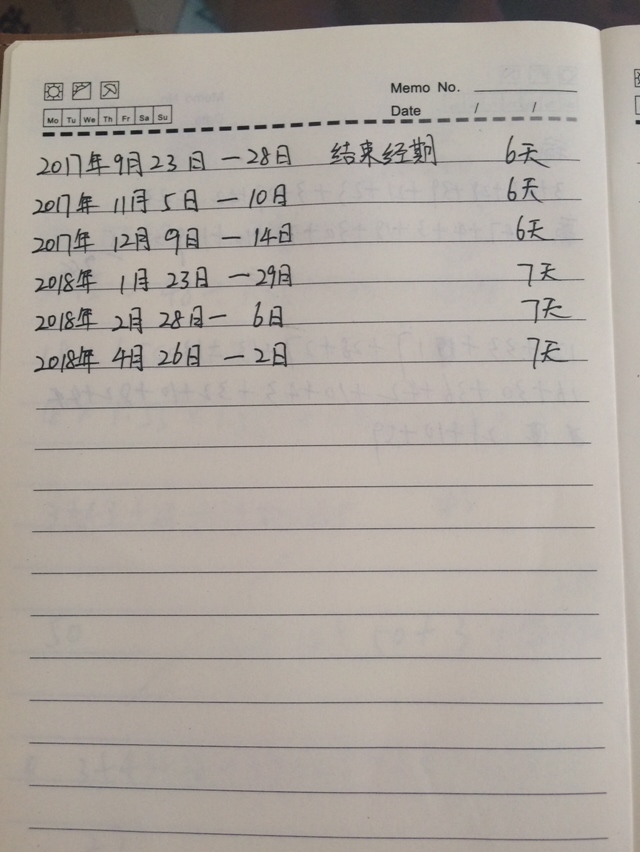 Memo No.
Mo Tu We Th Fr Sa Su
Date / /
2017年9月23日 — 28日 结束经期 6天
2017年 11月 5日 — 10日 6天
2017年 12月 9日 — 14日 6天
2018年 1月 23日 — 29日 7天
2018年 2月 28日 — 6日 7天
2018年 4月 26日 — 2日 7天